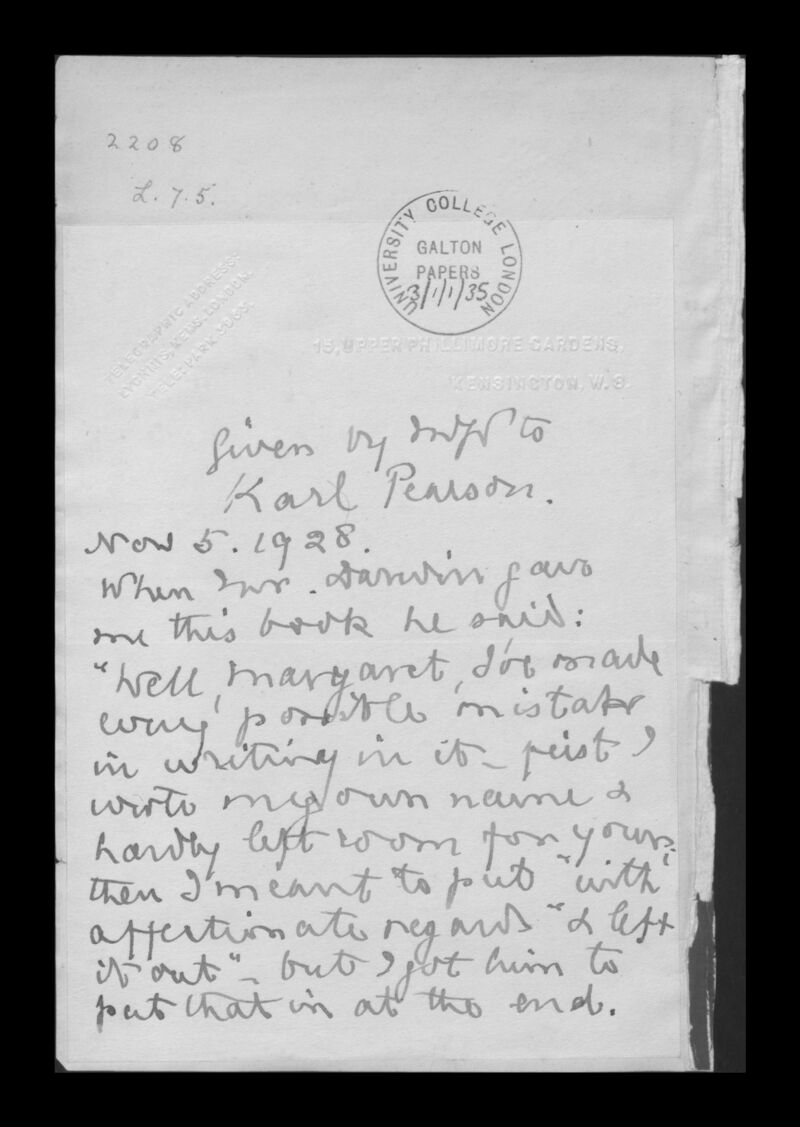 2208
L. 7. 5.
UNIVERSITY COLLEGE LONDON
GALTON
PAPERS
3/1/1/35
TELEGRAPHIC ADDRESS:
KENS. LONDON.
TELE: PARK
15, UPPER PHILLIMORE GARDENS,
KENSINGTON, W.8.
Given by to
Karl Pearson.
Nov 5. 1928.
When Mr. Darwin gave
me this book he said:
"Well, Margaret, I've made
every possible mistake
in writing in it – first I
wrote my own name &
hardly left room for yours.
then I meant to put "with
affectionate regards" & left
it out" – but I got him to
put that in at the end.